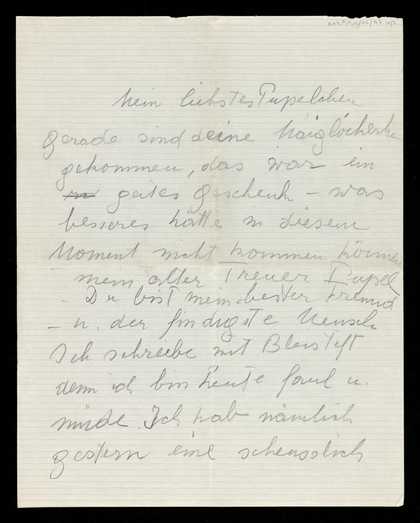 Mein liebstes Pupelchen
gerade sind deine Maiglöckchen
gekommen, das war ein
gutes Geschenk – was
besseres hätte in diesem
Moment nicht kommen können
mein alter treuer Pupel
– Du bist mein bester Freund
– u. der findigste Mensch
Ich schreibe mit Bleistift
denn ich bin heute faul u.
müde. Ich hab nämlich
gestern eine scheusslich